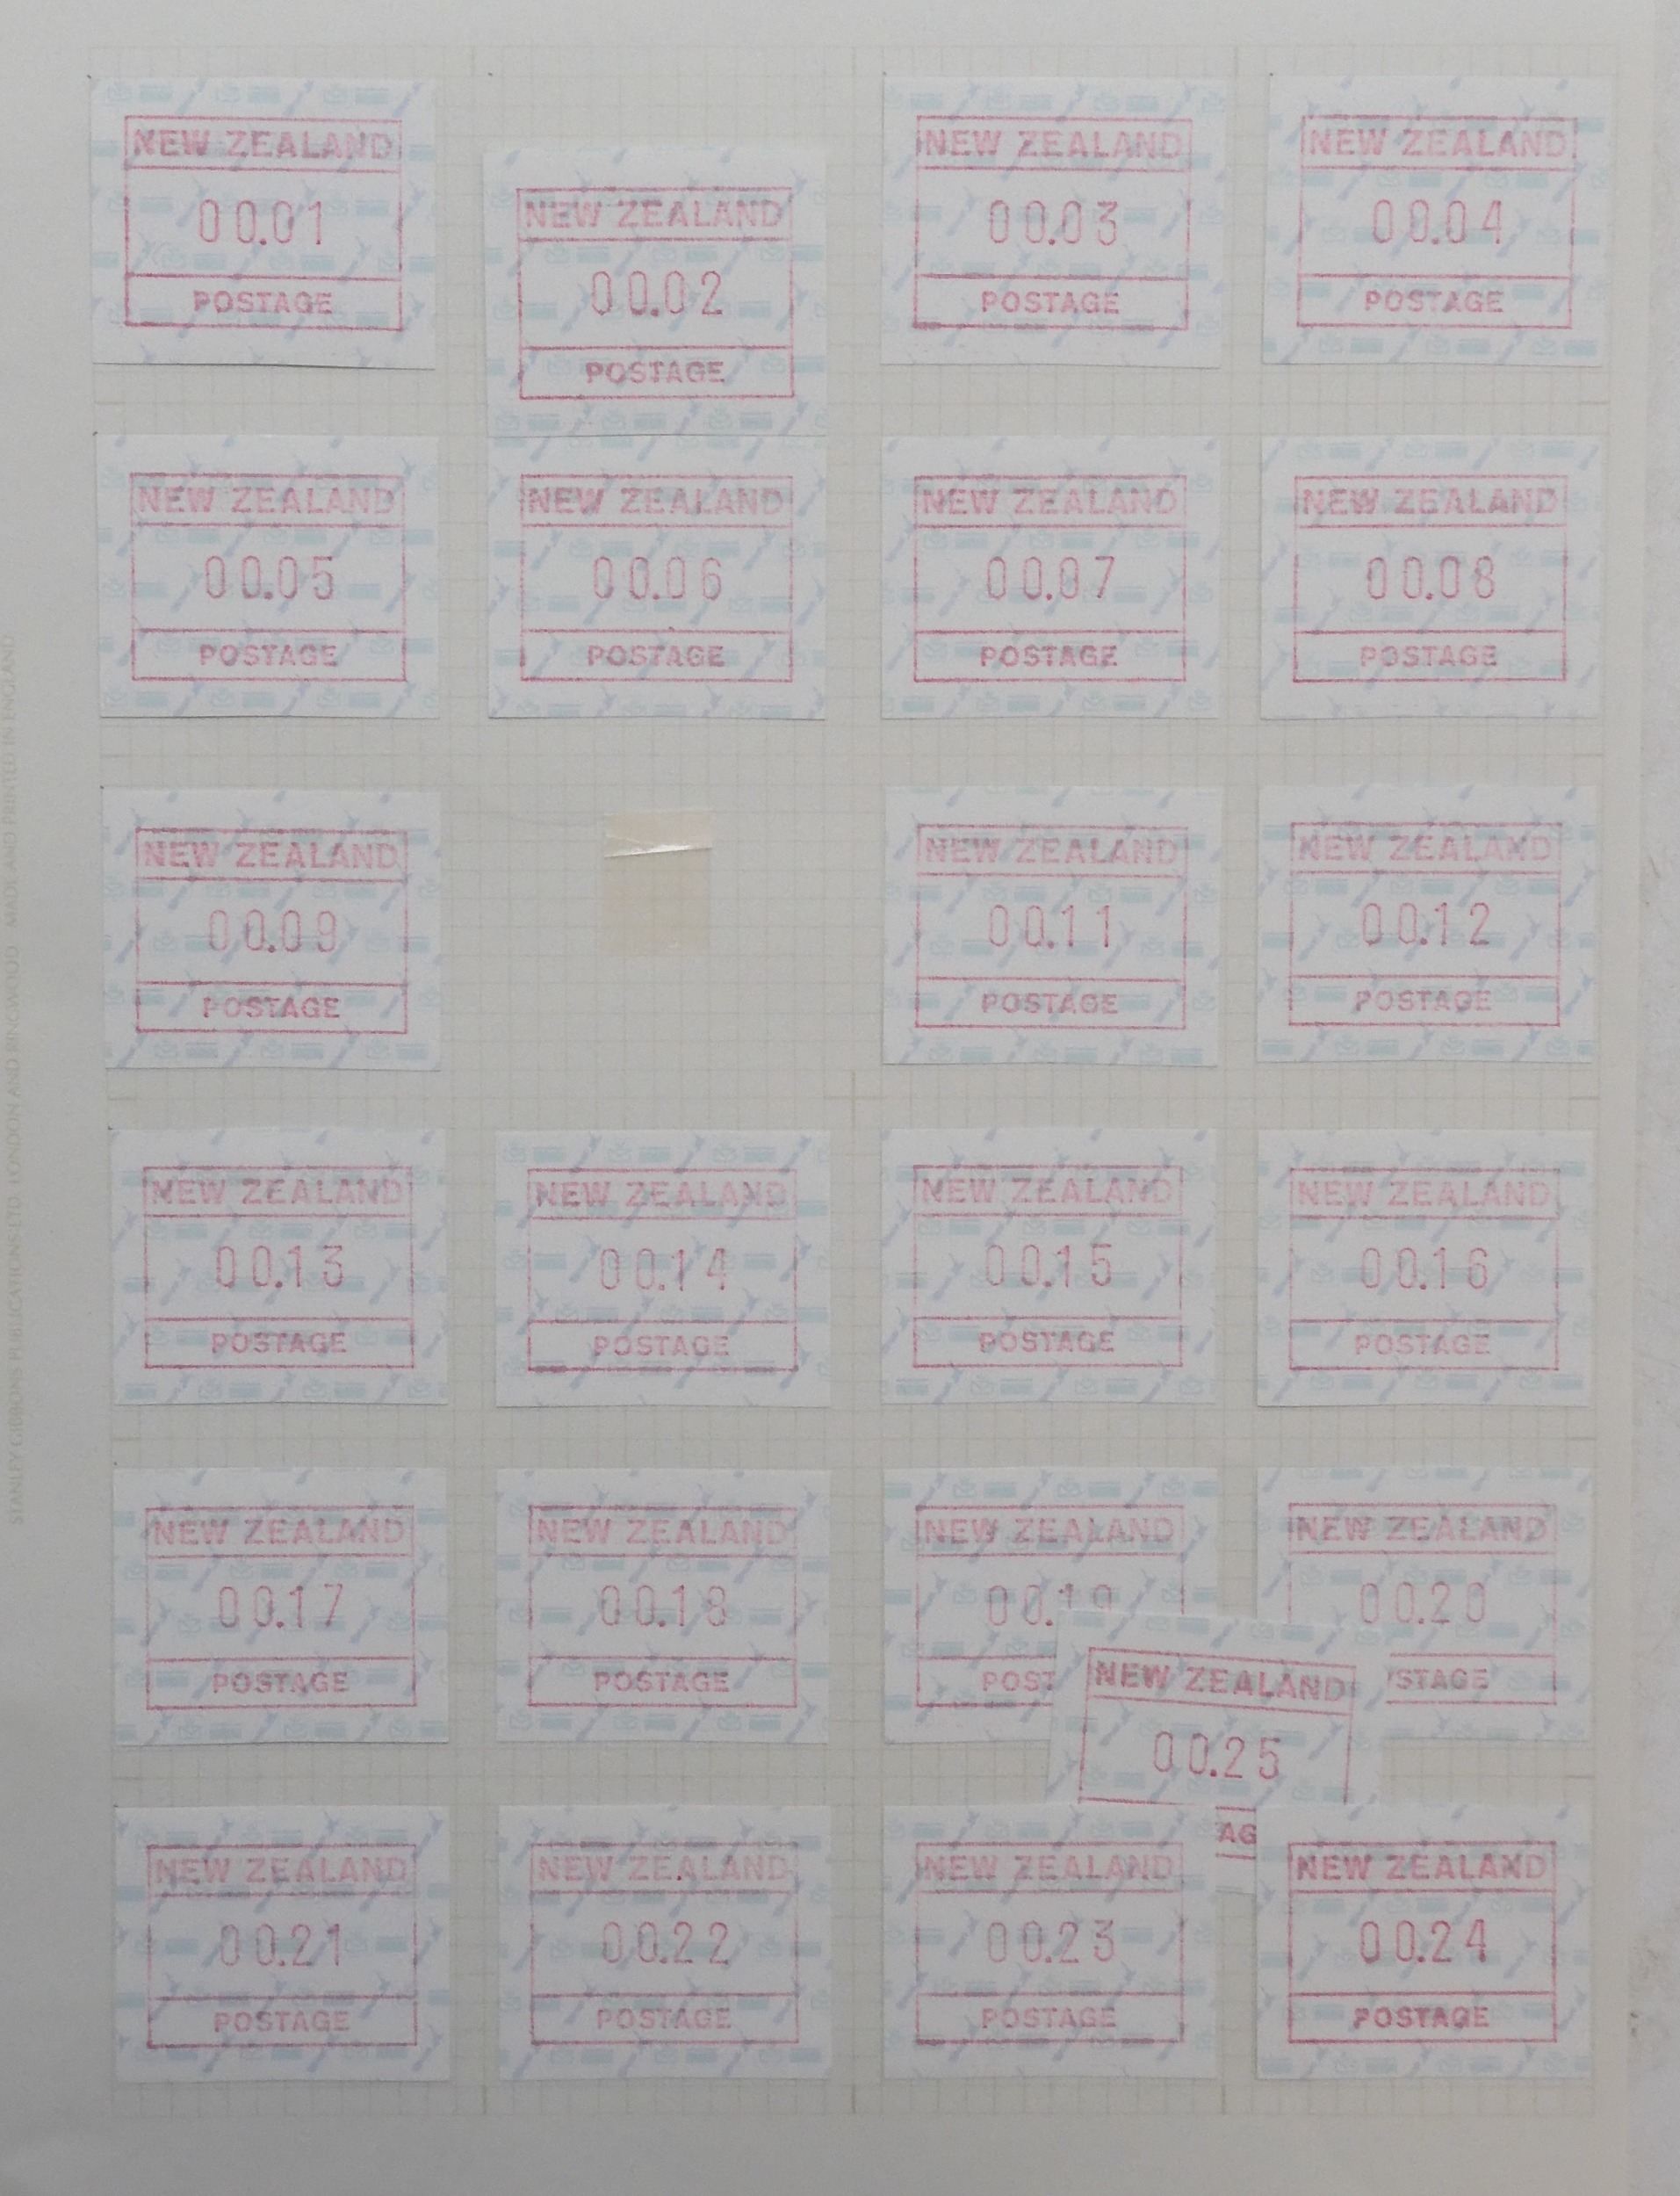 NEW ZEALAND
00.01
POSTAGE
NEW ZEALAND
00.02
POSTAGE
NEW ZEALAND
00.03
POSTAGE
NEW ZEALAND
00.04
POSTAGE
NEW ZEALAND
00.05
POSTAGE
NEW ZEALAND
00.06
POSTAGE
NEW ZEALAND
00.07
POSTAGE
NEW ZEALAND
00.08
POSTAGE
NEW ZEALAND
00.09
POSTAGE
NEW ZEALAND
00.11
POSTAGE
NEW ZEALAND
00.12
POSTAGE
NEW ZEALAND
00.13
POSTAGE
NEW ZEALAND
00.14
POSTAGE
NEW ZEALAND
00.15
POSTAGE
NEW ZEALAND
00.16
POSTAGE
NEW ZEALAND
00.17
POSTAGE
NEW ZEALAND
00.18
POSTAGE
NEW ZEALAND
00.19
POST
NEW ZEALAND
00.20
STAGE
NEW ZEALAND
00.25
AG
NEW ZEALAND
00.21
POSTAGE
NEW ZEALAND
00.22
POSTAGE
NEW ZEALAND
00.23
POSTAGE
NEW ZEALAND
00.24
POSTAGE
STANLEY GIBBONS PUBLICATIONS LTD LONDON AND RINGWOOD MADE AND PRINTED IN ENGLAND